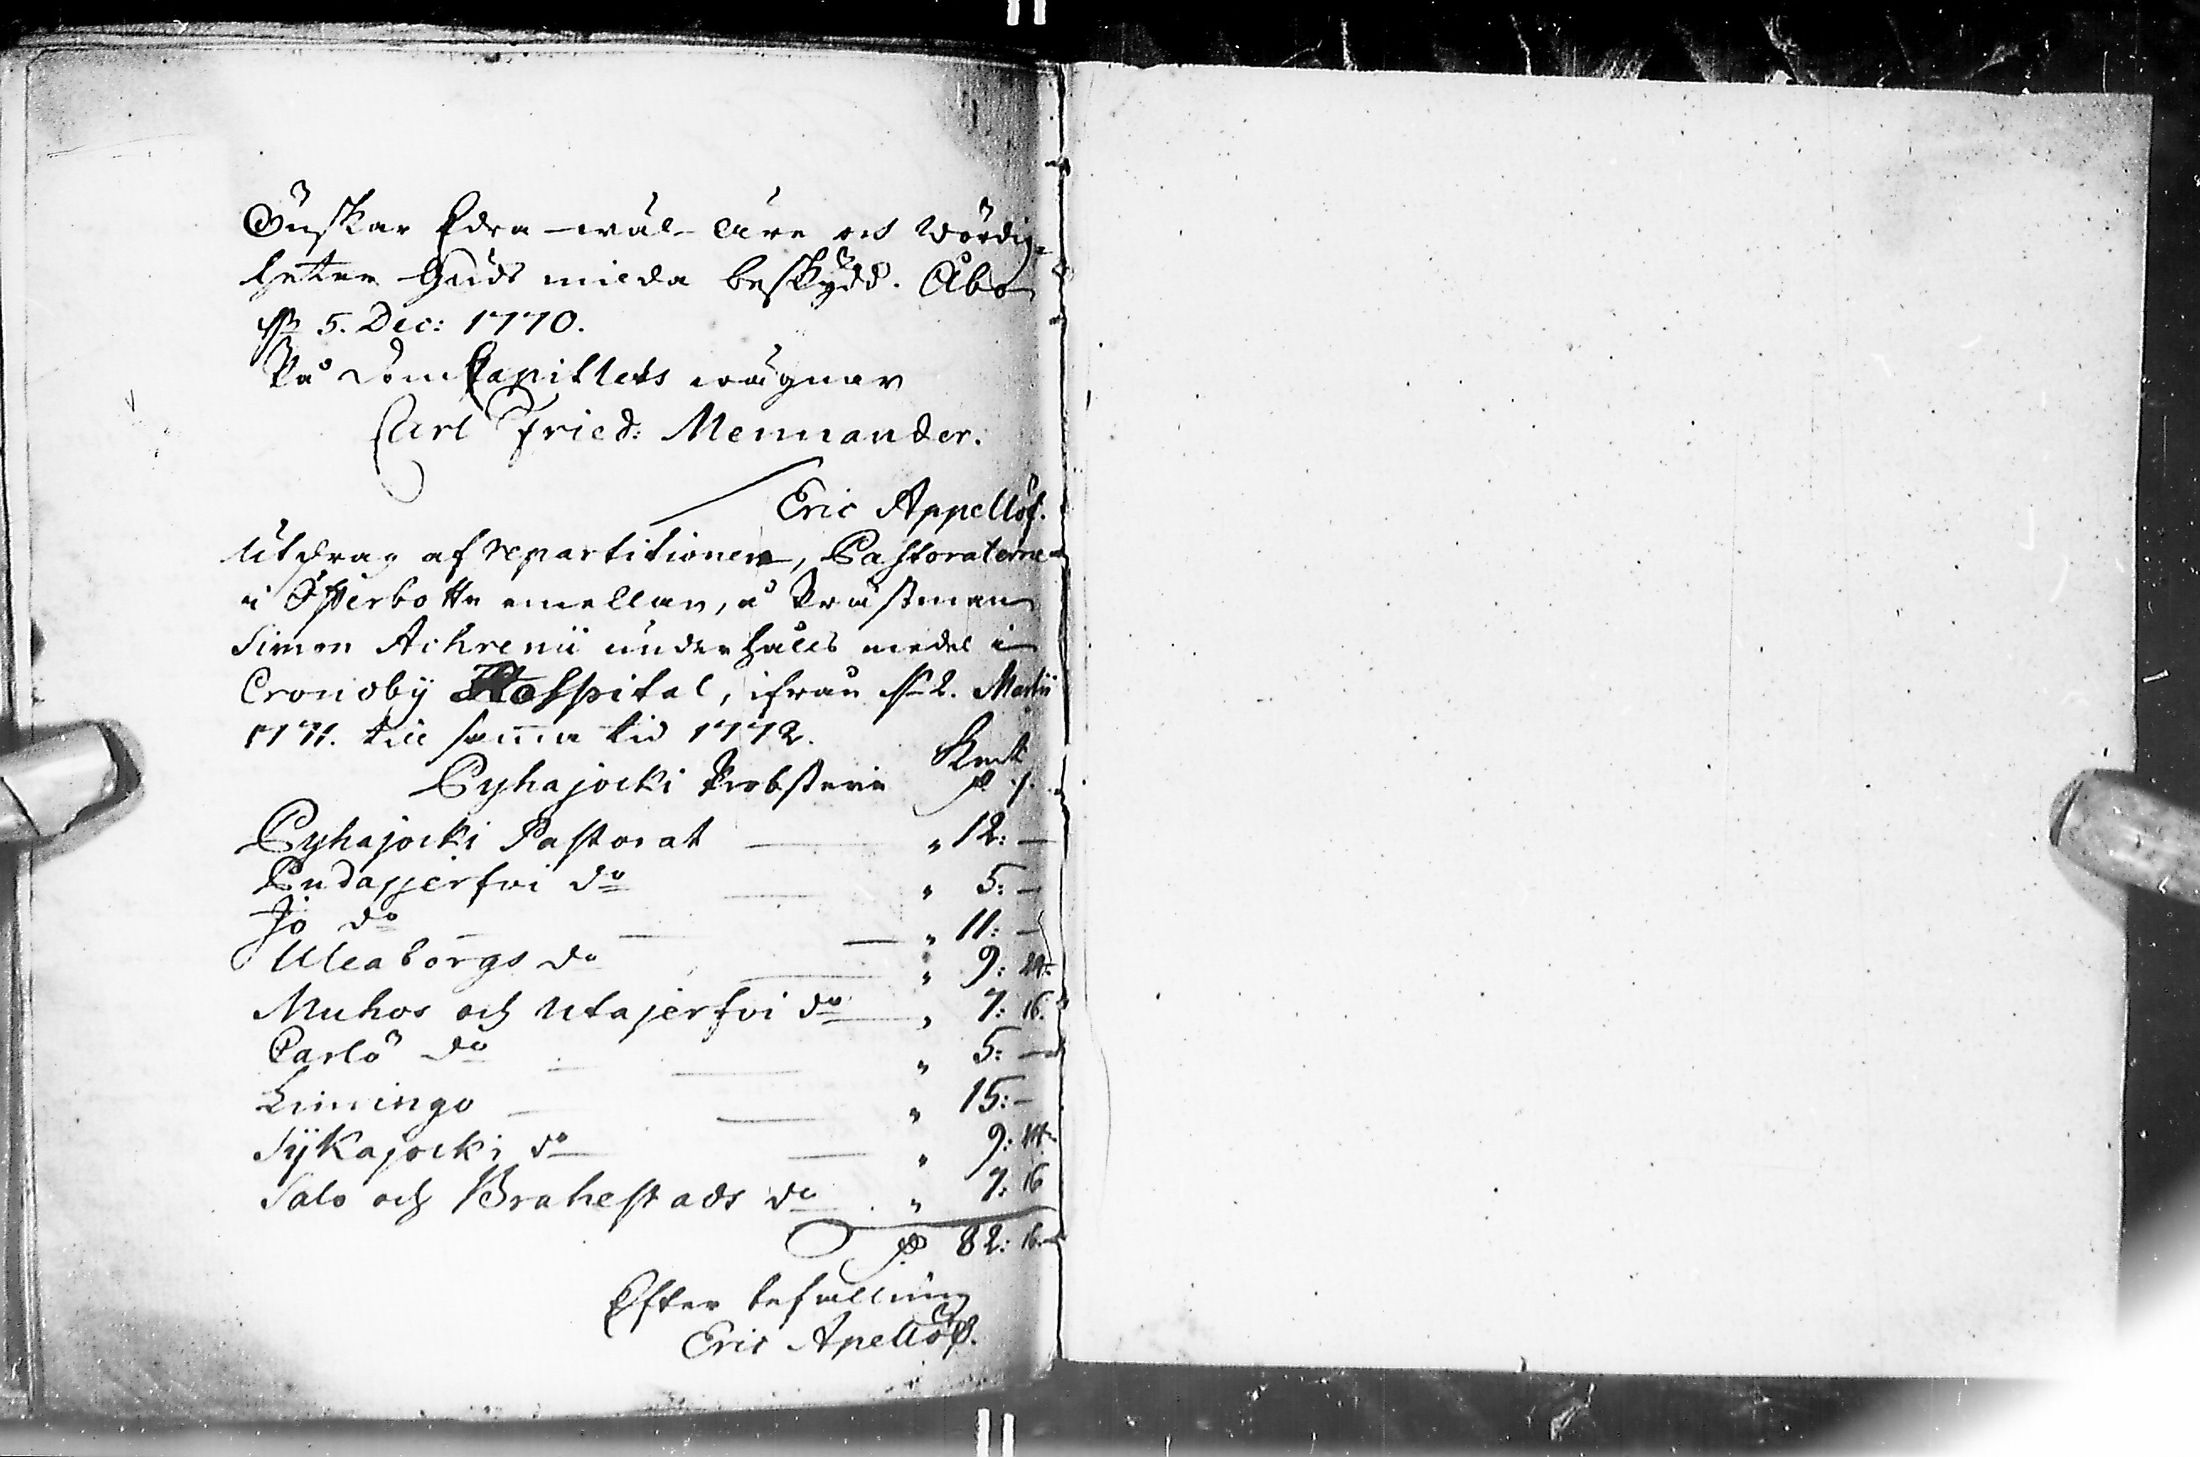 Önskar Edra wäl-äre och Wördig-
heter Guds milda beskydd. Åbo
d. 5. Dec: 1770.
På DomCapitlets wägnar
Carl Fried: Mennander.
Eric Appellöf.
Utdrag af repartitionen, Pastoraterne
i Österbottn emellan, å Prästman
Simon Achrenii underhålls medel i
Cronoby Hospital, ifrån d. 2. Martii
1771. till samma tid 1772.
Pyhajocki Probsteri
Pyhajocki Pastorat — " 12: —
Pudasjerfvi do — " 5: —
Jo do — " 11: —
Uleaborgs do — " 9:
Muhos och Utajerfvi do — " 7: 16.
Carlö do — " 5: —
Limingo — " 15: —
Sijkajocki do — " 9:
Salo och Brahestads do " 7: 16
82: 16.
Efter befallning
Eric Apellöf.